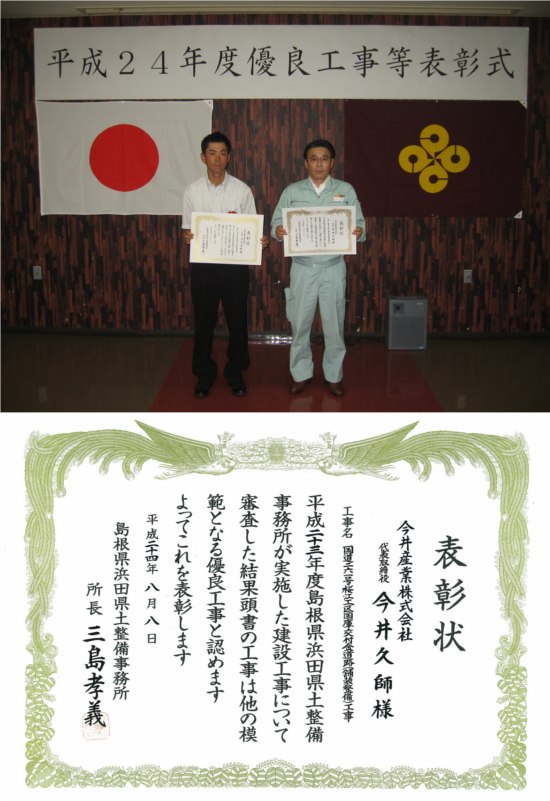 平成２４年度優良工事等表彰式
表彰状
表彰状
表彰状
今井産業株式会社
代表取締役 今井久師様
平成二十三年度島根県浜田県土整備
事務所が実施した建設工事について
審査した結果頭書の工事は他の模
範となる優良工事と認めます
よってこれを表彰します
平成二十四年八月八日
島根県浜田県土整備事務所
所長 三島孝義